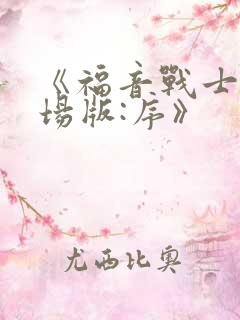 《福音戰士
場版:序》
尤西比奧